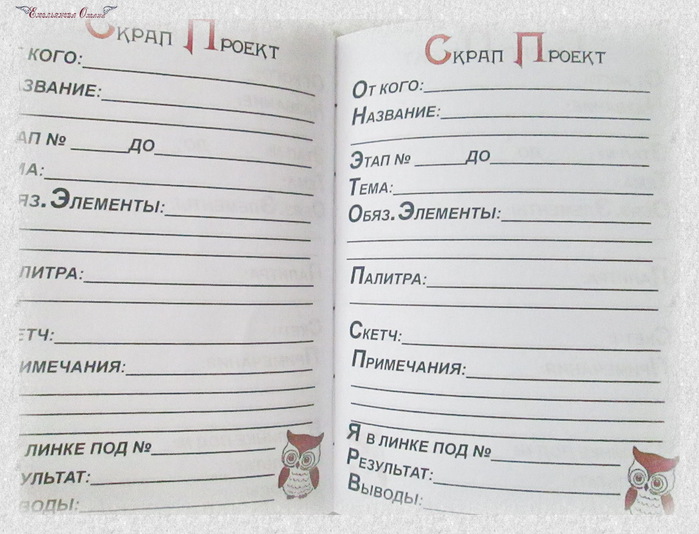 Емельянова Олана
Скрап Проект
т кого:
азвание:
ап № до
ма:
яз. Элементы:
литра:
етч:
имечания:
линке под №
ультат:
воды:
Скрап Проект
От кого:
Название:
Этап № до
Тема:
Обяз. Элементы:
Палитра:
Скетч:
Примечания:
Я в линке под №
Результат:
Выводы: